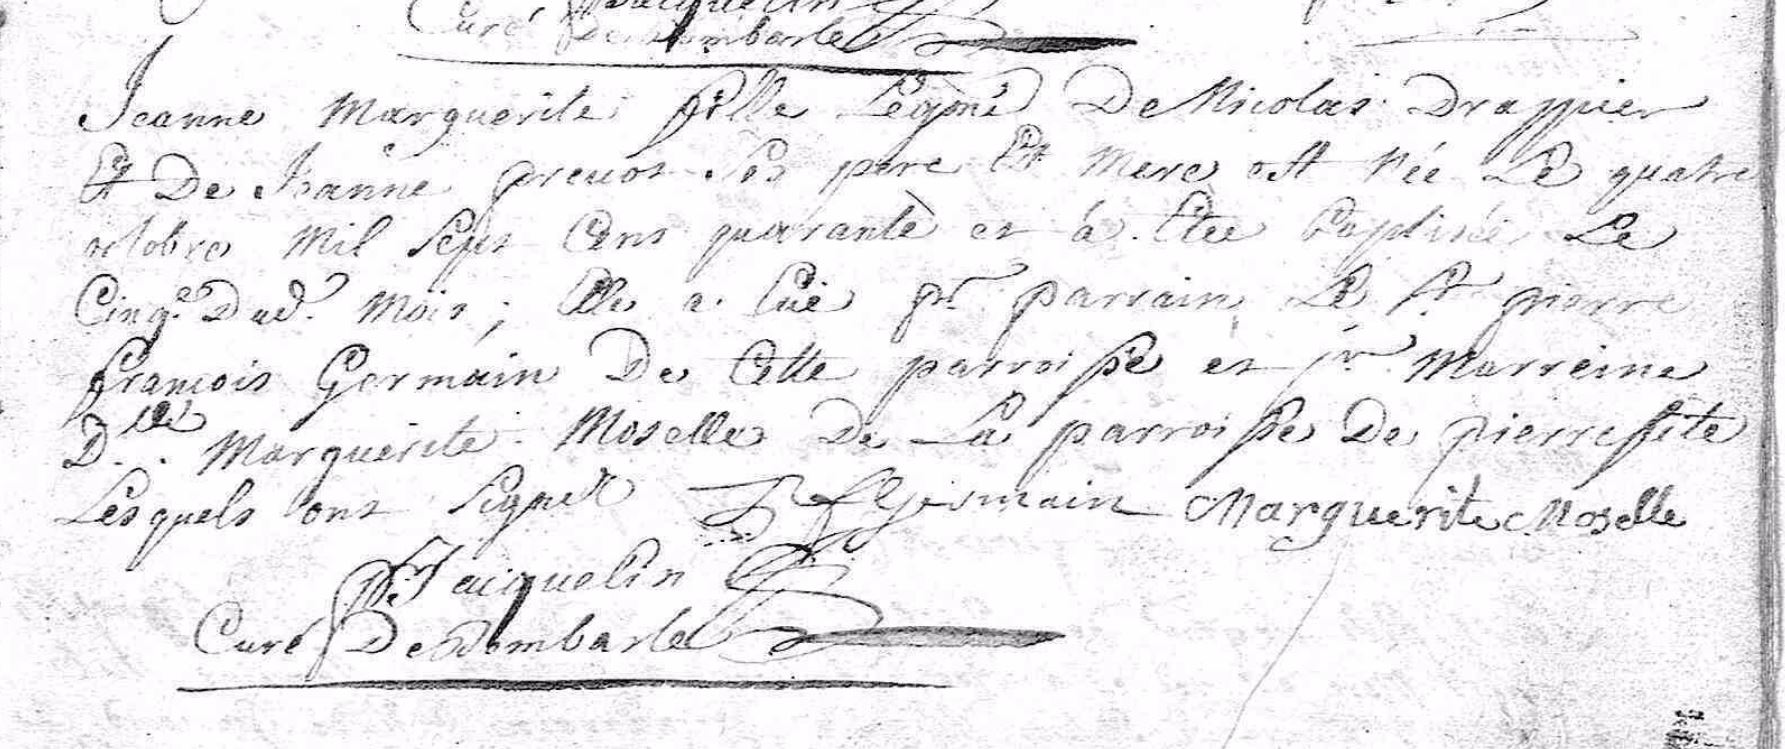 Curé Jacquelin
De Dombasle
Jeanne Marguerite fille Legmé De Nicolas Drappier
Et De Jeanne prevot Ses pere Et Mere est Née Le quatre
octobre Mil Sept Cens quarante et á Etée baptisée Le
Cinqe. Dud. Mois ; Elle a Euë pr. parrain Le Sr. pierre
françois Germain De Cette parroisse et pr. Marreine
Dlle. Marguerite Moselle De La parroisse De pierrefite
Lesquels ont Signé Germain Marguerite Moselle
Jacquelin
Curé De Dombasle